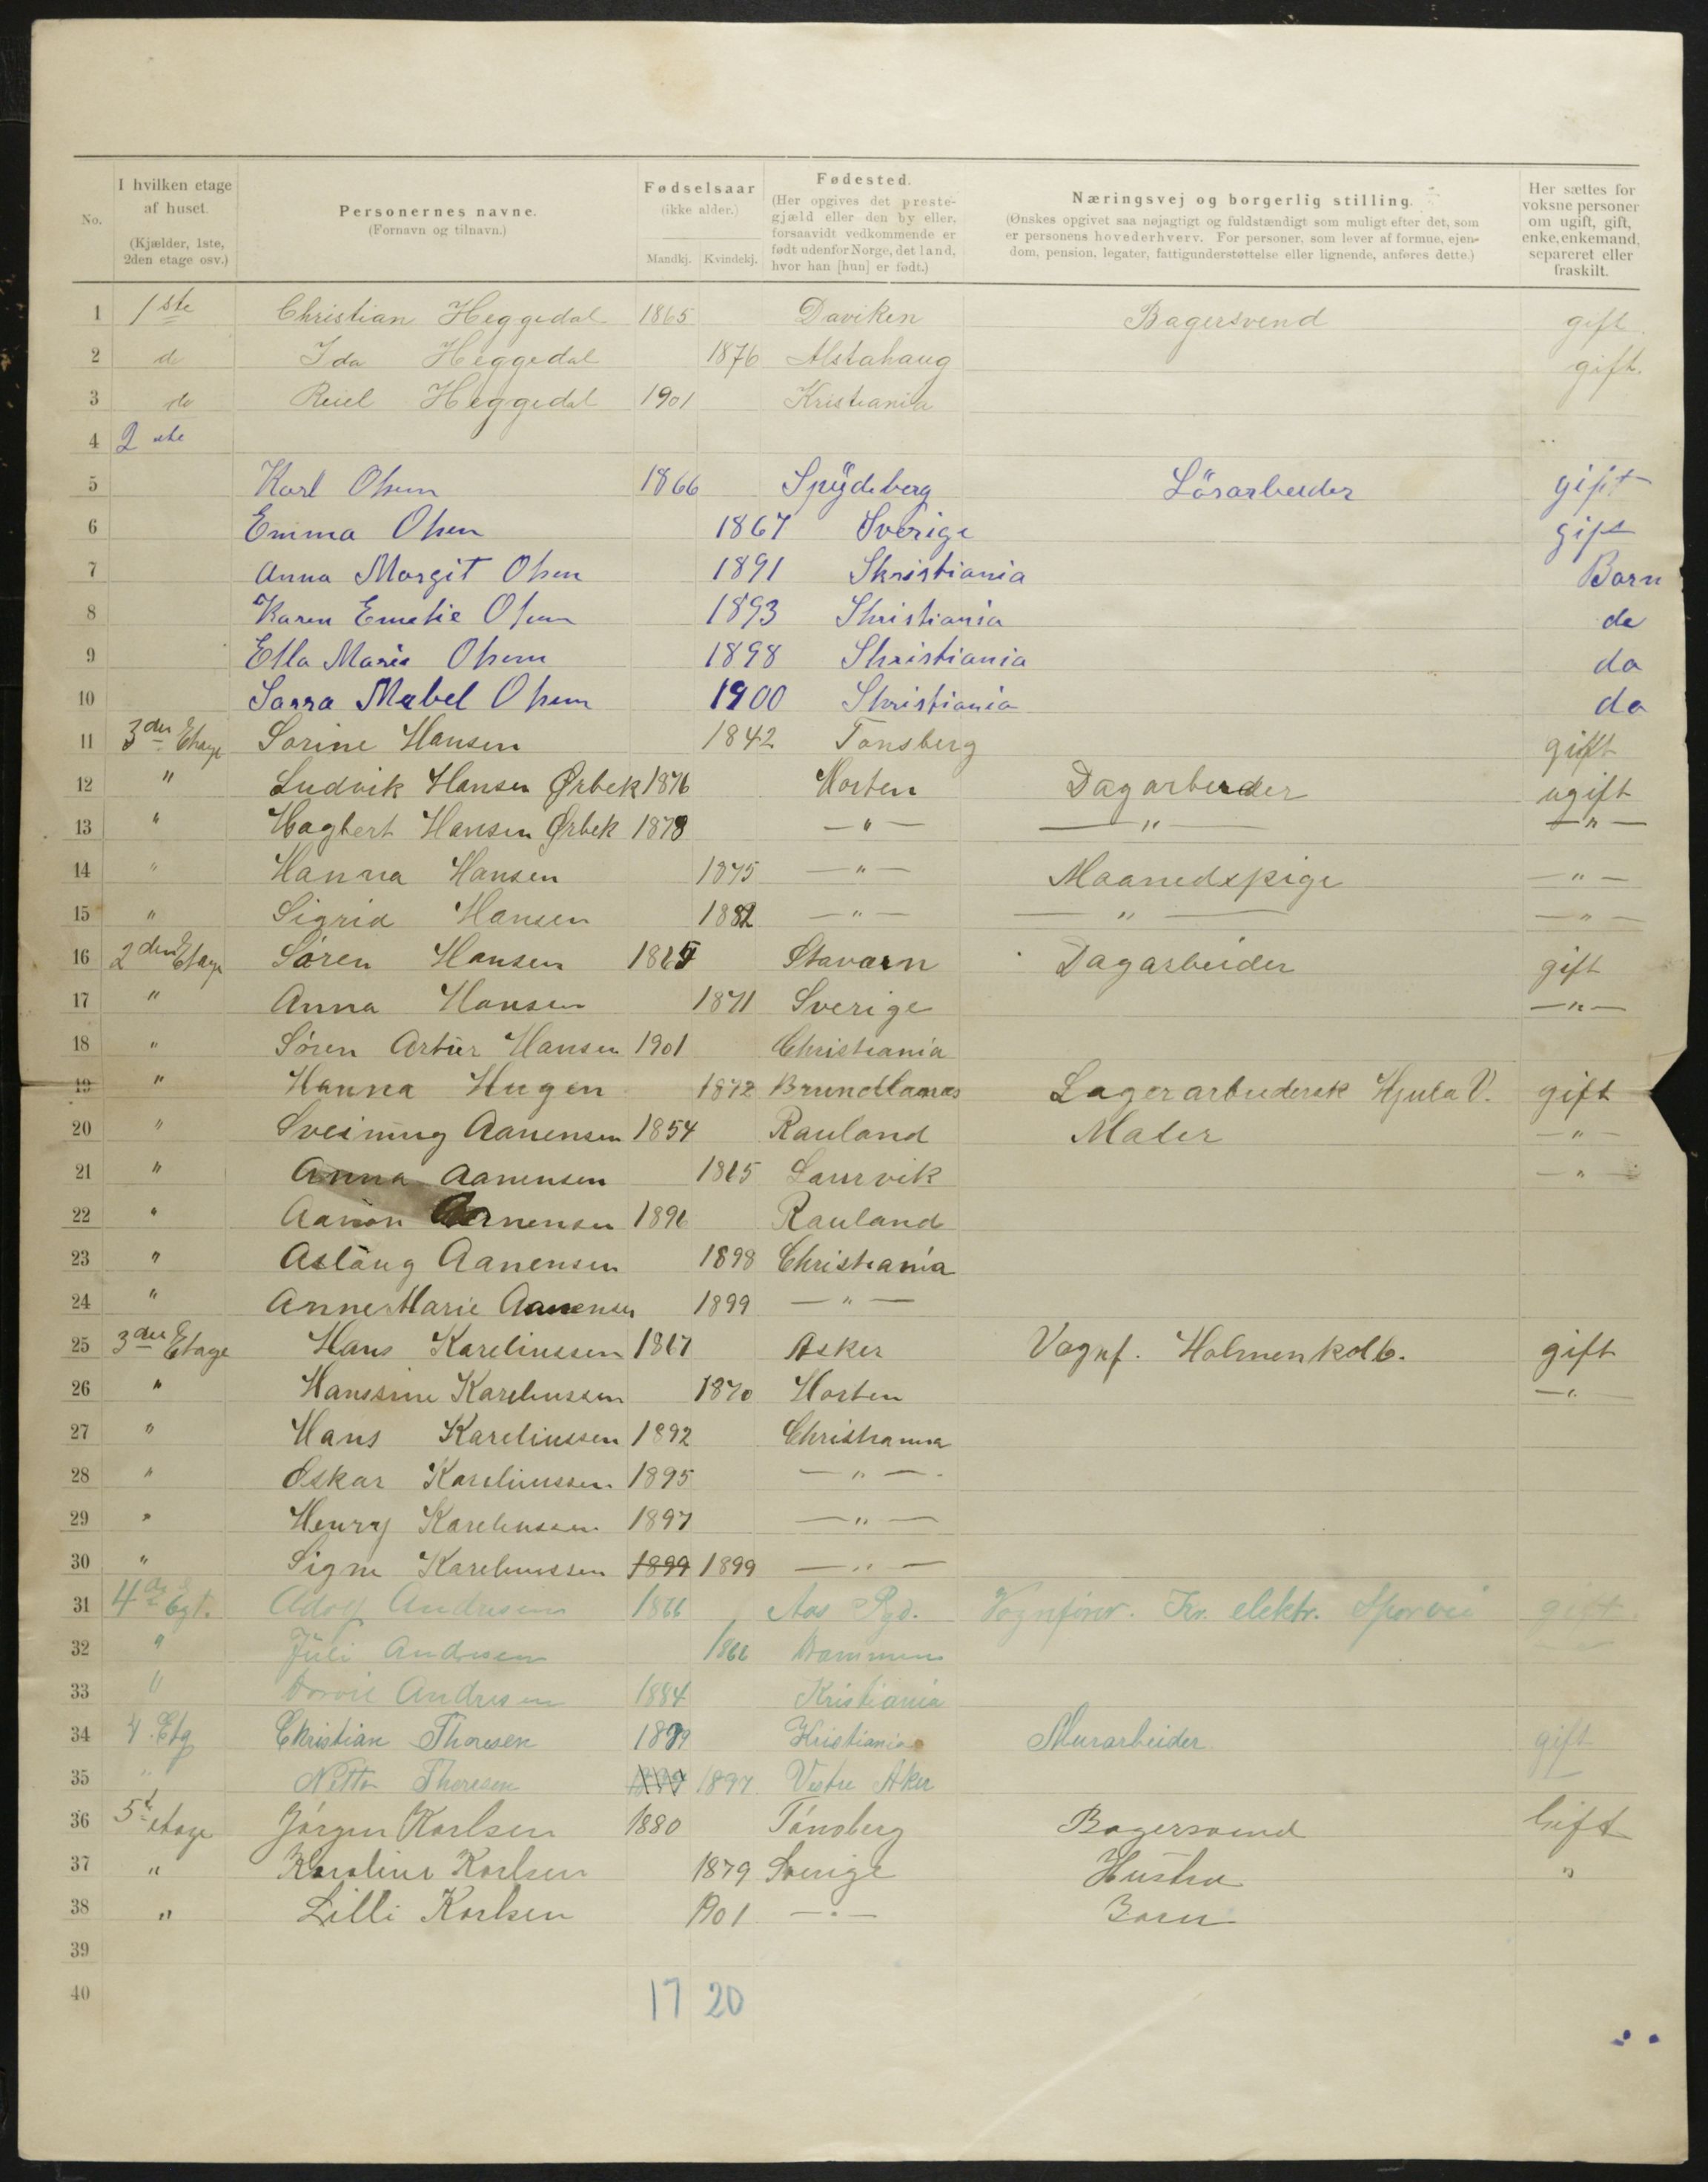 No.
I hvilken etage af huset. (Kjælder, 1ste, 2den etage osv.)
Personernes navne. (Fornavn og tilnavn.)
Fødselsaar (ikke alder.) Mandkj. Kvindekj.
Fødested. (Her opgives det prestegjæld eller den by eller, forsaavidt vedkommende er født udenfor Norge, det land, hvor han [hun] er født.)
Næringsvej og borgerlig stilling. (Ønskes opgivet saa nøjagtigt og fuldstændigt som muligt efter det, som er personens hovederhverv. For personer, som lever af formue, ejendom, pension, legater, fattigunderstøttelse eller lignende, anføres dette.)
Her sættes for voksne personer om ugift, gift, enke, enkemand, separeret eller fraskilt.
1 1ste Christian Heggedal 1865 Daviken Bagersvend gift
2 d Ida Heggedal 1876 Alstahaug gift.
3 do Reiel Heggedal 1901 Kristiania
4 2
5 Karl Olsen 1866 Spydeberg Lösarbeider gift
6 Emma Olsen 1867 Sverige gift
7 Anna Margit Olsen 1891 Skristiania Barn
8 Karen Emelie Olsen 1893 Shristiania do
9 Ella Marie Olsen 1898 Shristiania do
10 Sarra Mabel Olsen 1900 Shristiania do
11 3die Etage Sorine Hansen 1842 Tonsberg gift
12 " Ludvik Hansen Ørbek 1876 Horten Dagarbeider ugift
13 " Hagbert Hansen Ørbek 1878 —"— —"— —"—
14 " Hanna Hansen 1875 —"— Maanedspige —"—
15 " Sigrid Hansen 1882 —"— —"— —"—
16 2den Etage Søren Hansen Stavarn Dagarbeider gift
17 " Anna Hansen 1871 Sverige —"—
18 " Søren Artur Hansen 1901 Christiania
19 " Hanna Hugen 1872 Brundlanæs Lagerarbeiderek Hjula V. gift
20 " Sveinung Aanensen 1854 Rauland Maler —"—
21 " Anna Aanensen 1865 Laurvik —"—
22 " Aanon Aanensen 1896 Rauland
23 " Aslaug Aanensen 1898 Christiania
24 " Anne Marie Aanensen 1899 —"—
25 3die Etage Hans Kareliussen 1867 Asker Vognf. Holmenkolb. gift
26 " Hanssine Kareliussen 1870 Horten —"—
27 " Hans Kareliussen 1892 Christiania
28 " Oskar Kareliussen 1895 —"—
29 " Henry Kareliussen 1897 —"—
30 " Signe Kareliussen 1899 1899 —"—
31 4de Etg. Adolf Andresen 1866 Aas Pgd. Vognfører. Kr. elektr. Sporvei gift
32 " Juli Andresen 1866 Drammen
33 " Andresen 1884 Kristiania
34 4. Etg Christian Thoresen Kristiania Murarbeider gift
35 " Thoresen Vestre Aker
36 5te etage Jörgen Karlsen 1880 Tönsberg Bagersvend Gift
37 " Karoline Karlsen 1879 Sverige Hustru "
38 " Lilli Karlsen 1901 —"— Barn
39
40
17 20